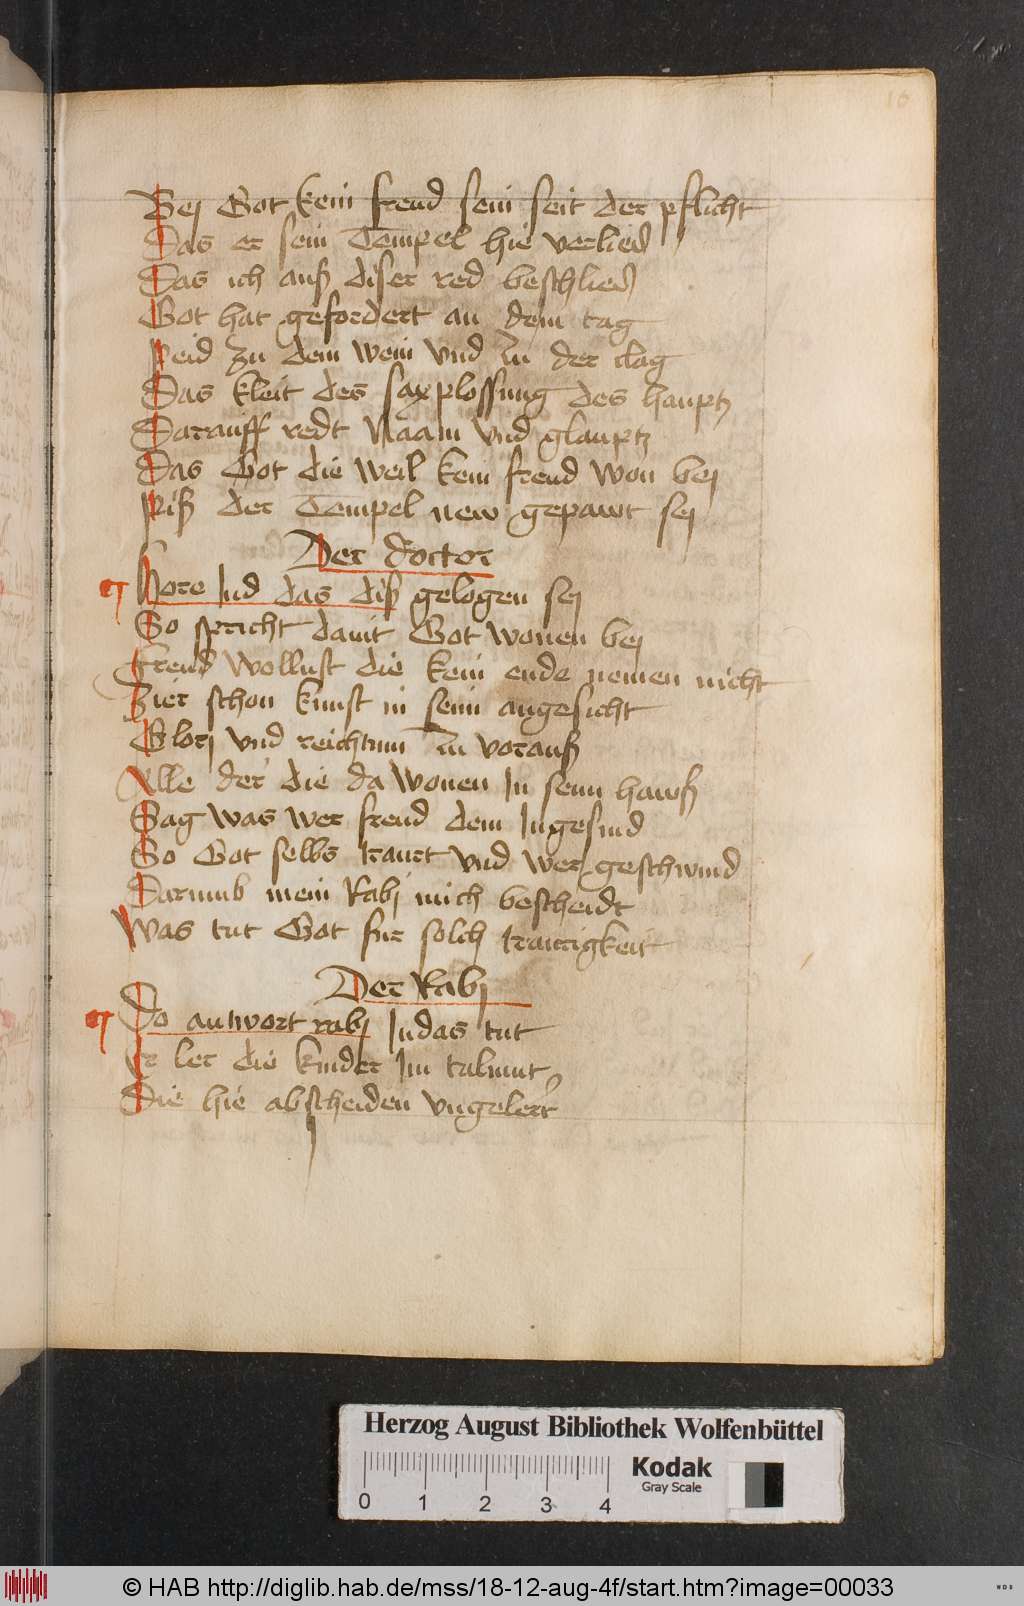 10
Bej Got kein freud sein seit der pflicht
Das er sein Tempel hie verlies
Das ich auß diser red beschlies
Got hat gefordert an dem tag
Peid zu dem wein vnd zu der clag
Das kleit des sax plossung des hauptz
Darauff redt Naam vnd glauptz
Das Got die weil kein freud won bej
Piß der Tempel new gepawt sej
Der doctor
Hore Jud das diß gelogen sej
So spricht dauit Got wonen bej
Freud wollust die kein ende nemen nicht
Zier schon kunst in seim angesicht
Glorj vnd reichtum zu vorauß
Alle der die da wonen In seim hawß
Sag was wer freud dem Ingesind
So Got selbs traurt vnd wer geschwind
Darumb mein Rabj mich bescheidt
Was tut Got fur solch traurigkeit
Der Rabj
Do antwort rabj Judas tut
Er ler die kinder Im talmut
Die hie abscheiden vngelert
Herzog August Bibliothek Wolfenbüttel
Kodak
Gray Scale
0 1 2 3 4
© HAB http://diglib.hab.de/mss/18-12-aug-4f/start.htm?image=00033
WDB